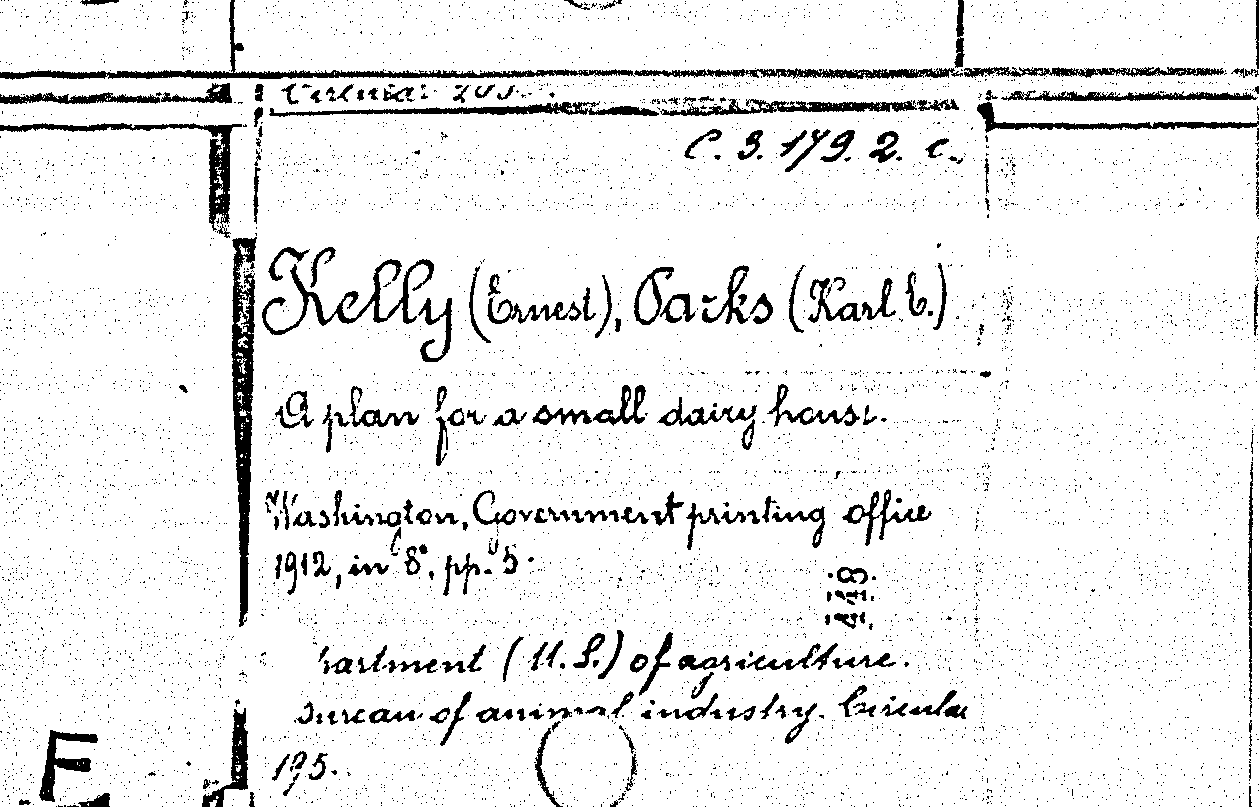 C. 3. 179. 2. c.
Kelly (Ernest), Parks (Karl E.)
A plan for a small dairy house.
Washington, Government printing office
1912, in 8°, pp. 5.
partment (U. S.) of agriculture.
Bureau of animal industry. Circular
195.
E